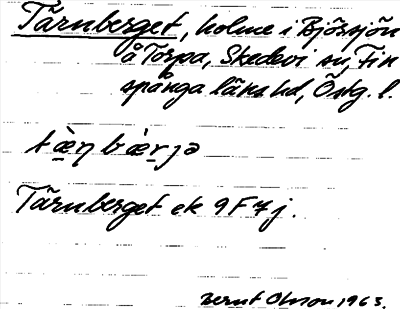 Tärnberget, holme i Björsjön
å Torpa, Skedevi sn, Fin
spånga läns hd, Östg. l.
tæ̀ŋ bæ̀rjə
Tärnberget ek 9F7j.
Bernt Olsson 1963.